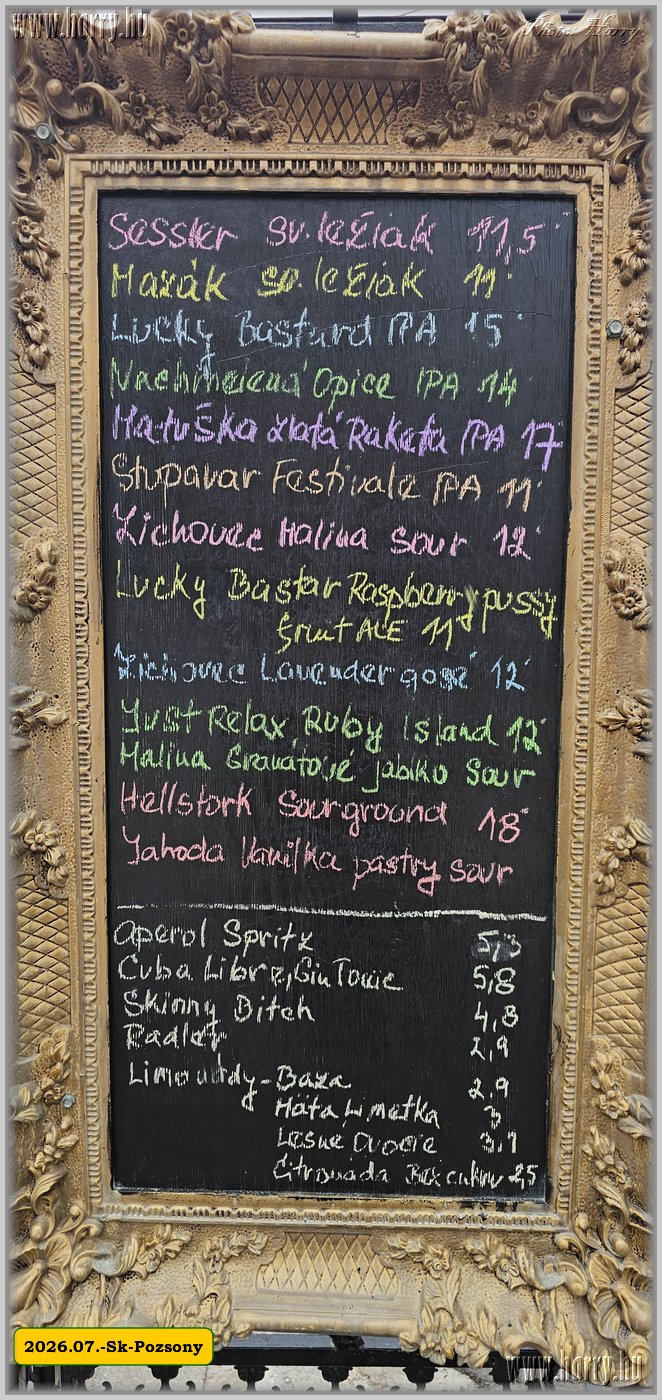 www.harry.hu
Photo: Harry
Sessler sv. ležiak 11,5°
Mazák sv. ležiak 11°
Lucky Bastard IPA 15°
Nachmelená Opice IPA 14°
Matuška zlatá Raketa IPA 17°
Stupavar Festivale IPA 11°
Zichovec Malina Sour 12°
Lucky Bastar Raspberry pussy
fruit ALE 11°
Zichovec Lavender gose 12°
Just Relax, Ruby Island 12°
Malina Granátové jablko Sour
Hellstork Sourground 18°
Jahoda Vanilka pastry sour
Aperol Spritz
Cuba Libre, Gin Tonic 5,8
Skinny Bitch 4,8
Radler 2,9
Limonády - Baza 2,9
Mäta Limetka 3
Lesné Ovocie 3,1
Citronada Bez cukru 2,5
2026.07.-Sk-Pozsony
www.harry.hu